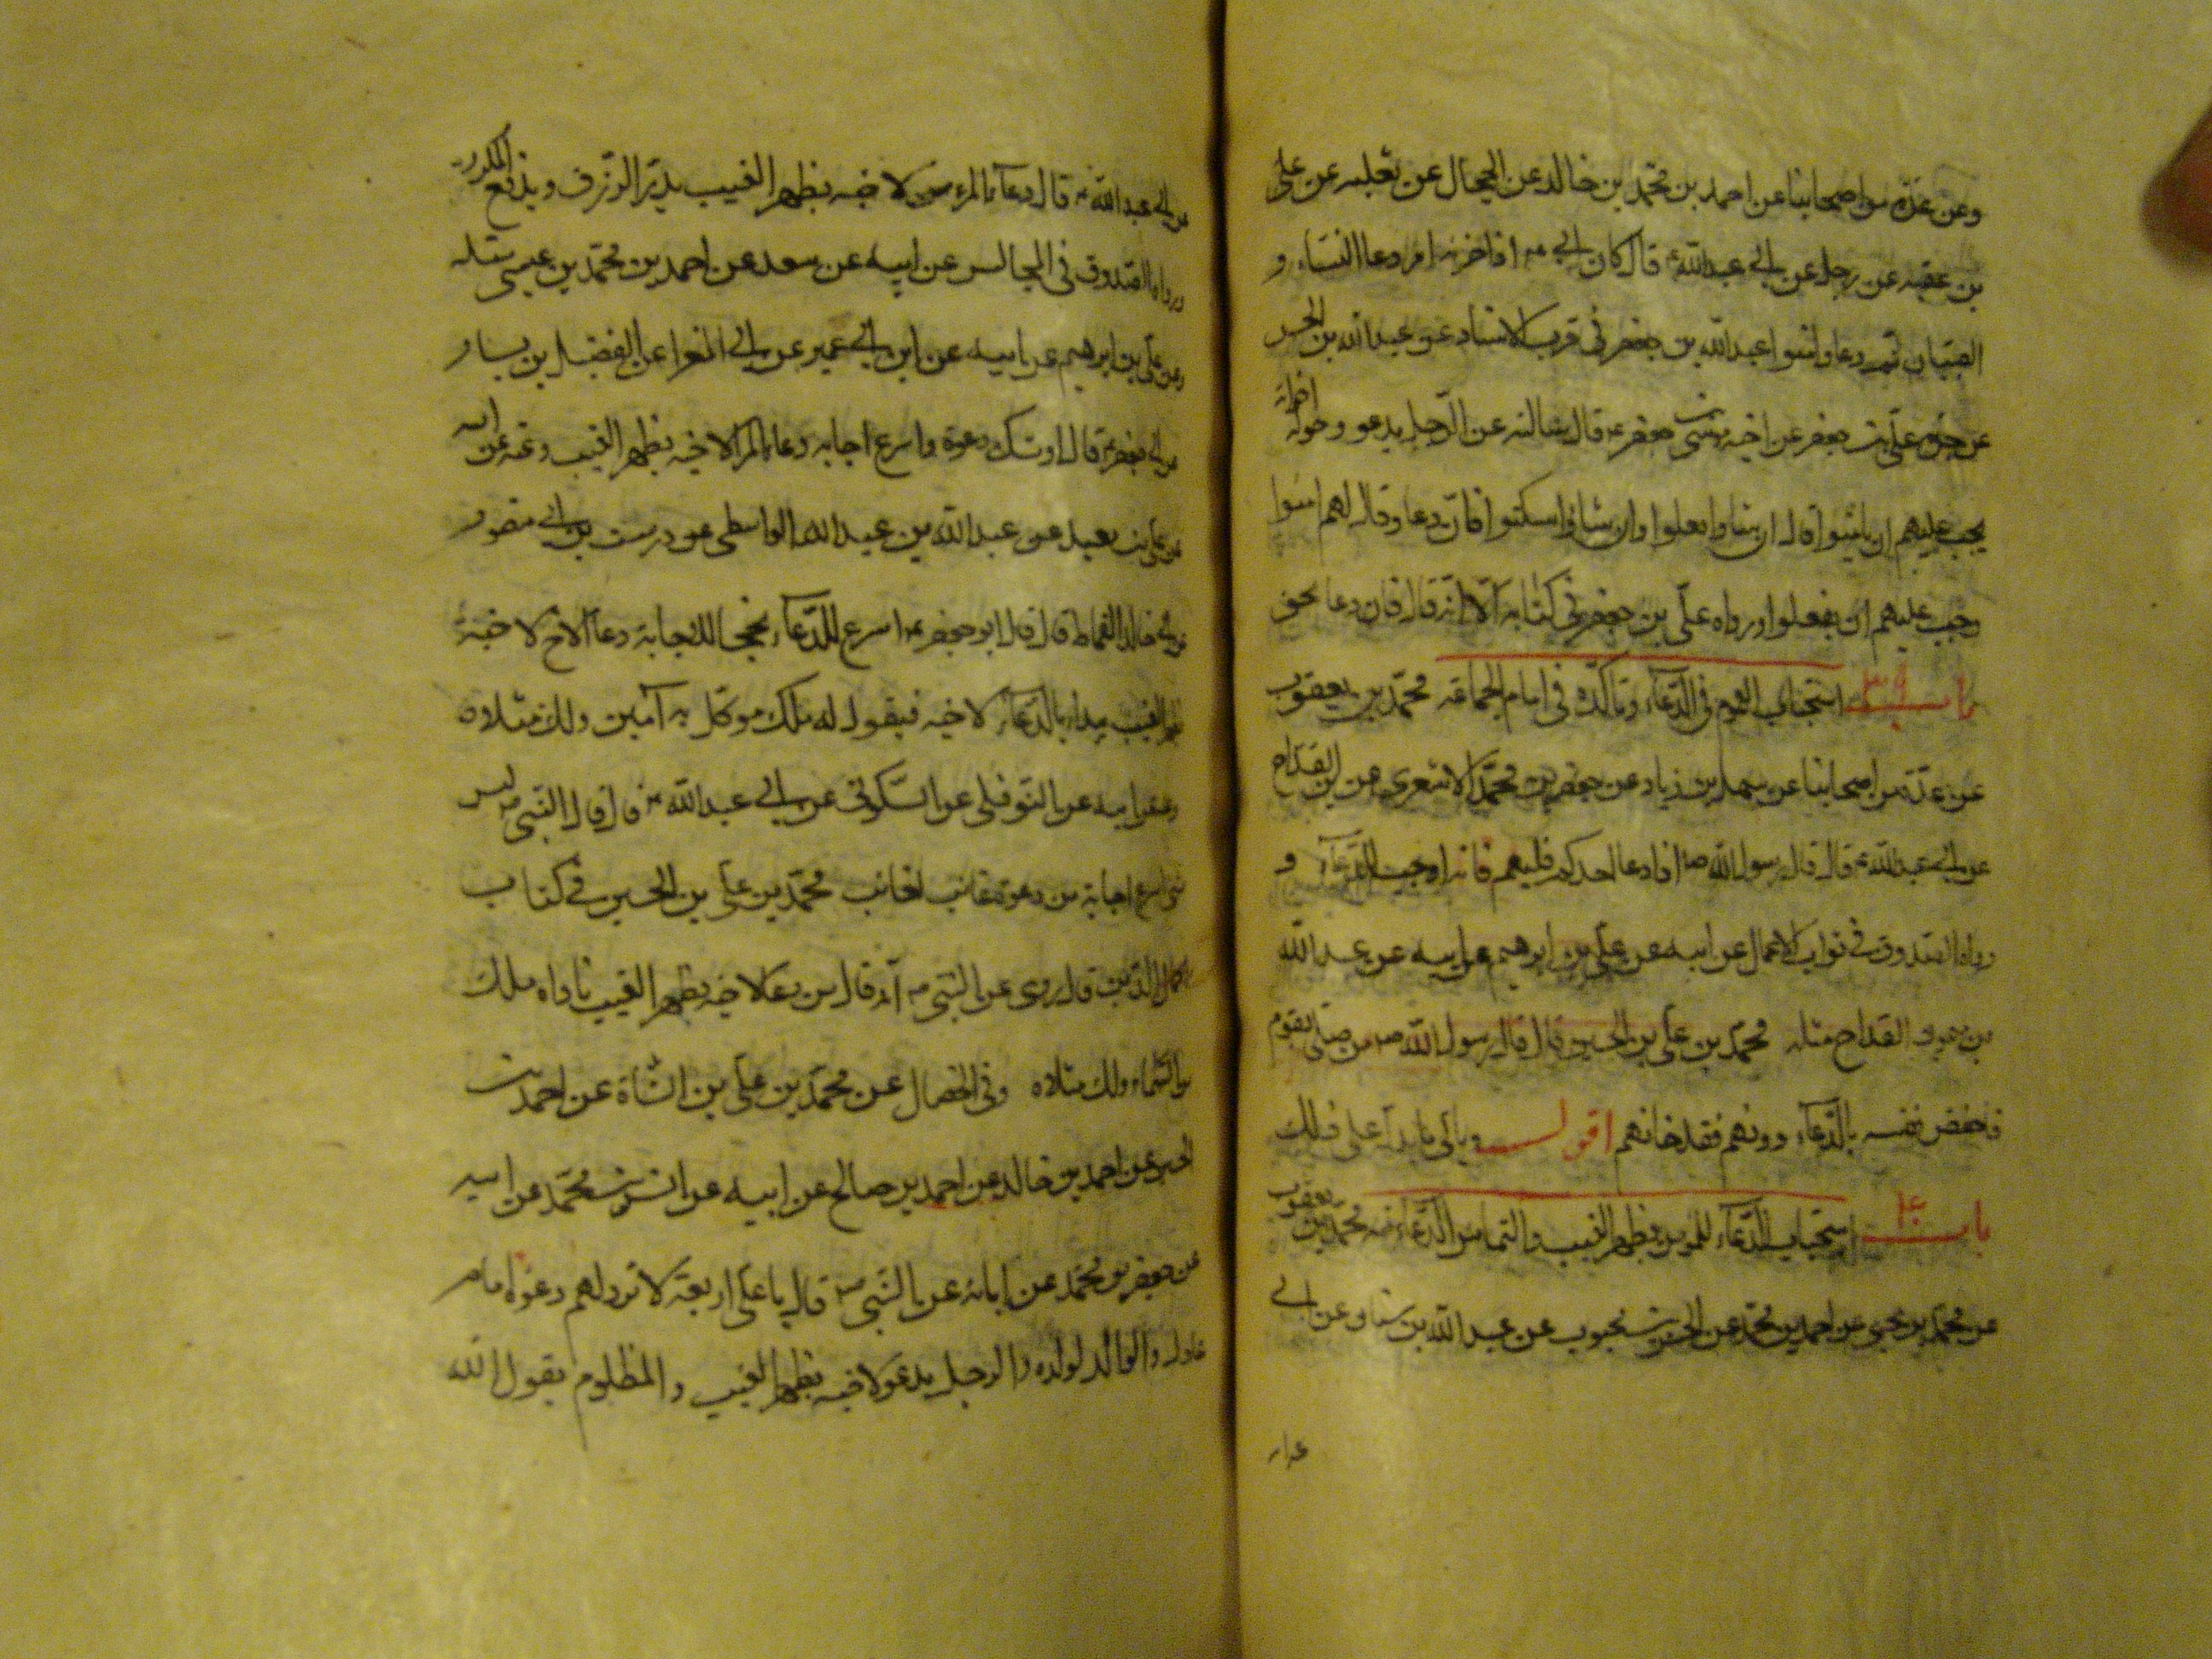 وعن عدة من اصحابنا عن احمد بن محمد بن خالد عن الحجال عن ثعلبه عن على
بن عقبه عن رجل عن ابي عبد الله ع قال كان ابي ع اذا حزنه امر دعا النساء و
الصبيان ثم دعا وامنوا عبد الله بن جعفر في قرب الاسناد عن عبد الله بن الحسن
عن جده على بن جعفر عن اخيه موسى بن جعفر ع قال سالته عن الرجل يدعو وحوله اخوانه
يجب عليهم ان يامنوا قال ان شاوا فعلوا وان شاوا سكتوا فان دعا وقال لهم امنوا
وجب عليهم ان يفعلوا ورواه على بن جعفر في كتابه الا انه قال فان دعا بحق
باب ٣٩ استحباب العموم في الدعاء وتاكده في امام الجماعة محمد بن يعقوب
عن عدة من اصحابنا عن سهل بن زياد عن جعفر بن محمد الاشعرى عن ابن القداح
عن ابي عبد الله ع قال قال رسول الله ص اذا دعا احدكم فليعم فانه اوجب للدعاء و
رواه الصدوق في ثواب الاعمال عن ابيه عن على بن ابرهيم عن ابيه عن عبد الله
بن ميمون القداح مثله محمد بن على بن الحسين قال قال رسول الله ص من صلى بقوم
فاختص نفسه بالدعاء دونهم فقد خانهم اقول وياتى ما يدل على ذلك
باب ٤٠ استحباب الدعاء للمؤمن بظهر الغيب والتماس الدعاء منه محمد بن يعقوب
عن محمد بن يحيى عن احمد بن محمد عن الحسن بن محبوب عن عبد الله بن سنان وعن ابي
عن ابي عبد الله ع قال دعاء المرء لاخيه بظهر الغيب يدر الرزق ويدفع المكروه
ورواه الصدوق في المجالس عن ابيه عن سعد عن احمد بن محمد بن عيسى مثله
وعن على بن ابرهيم عن ابيه عن ابن ابي عمير عن ابي المغرا عن الفضيل بن يسار
عن ابي جعفر ع قال اوشك دعوة واسرع اجابه دعاء المرء لاخيه بظهر الغيب وعنه عن ابيه
عن على بن معبد عن عبد الله بن عبيد الله الواسطى عن درست بن ابي منصور
عن ابي خالد القماط قال قال ابو جعفر ع اسرع الدعاء نجحا للاجابة دعاء الاخ لاخيه
بظهر الغيب يبدا بالدعاء لاخيه فيقول له ملك موكل به آمين ولك مثلاه
وعن ابيه عن النوفلى عن السكونى عن ابي عبد الله ع قال قال النبي ص ليس
شى اسرع اجابة من دعوة غائب لغائب محمد بن على بن الحسين في كتاب
اكمال الدين قال روى عن النبي ص انه قال من دعا لاخيه بظهر الغيب ناداه ملك
من السماء ولك مثلاه وفي الخصال عن محمد بن على بن الشاة عن احمد بن
الحسين عن احمد بن خالد عن احمد بن صالح عن ابيه عن انس بن محمد عن ابيه
عن جعفر بن محمد عن ابائه عن النبي ص قال يا على اربعة لا ترد لهم دعوة امام
عادل والوالد لولده والرجل يدعو لاخيه بظهر الغيب والمظلوم يقول الله